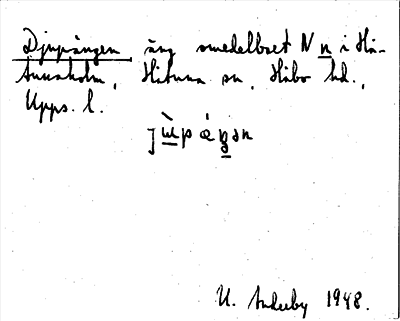 Djupängen, äng omedelbart N n i Hä-
tunaholm, Håtuna sn, Håbo hd.,
Upps. l.
jùpáŋən
U. 1948.